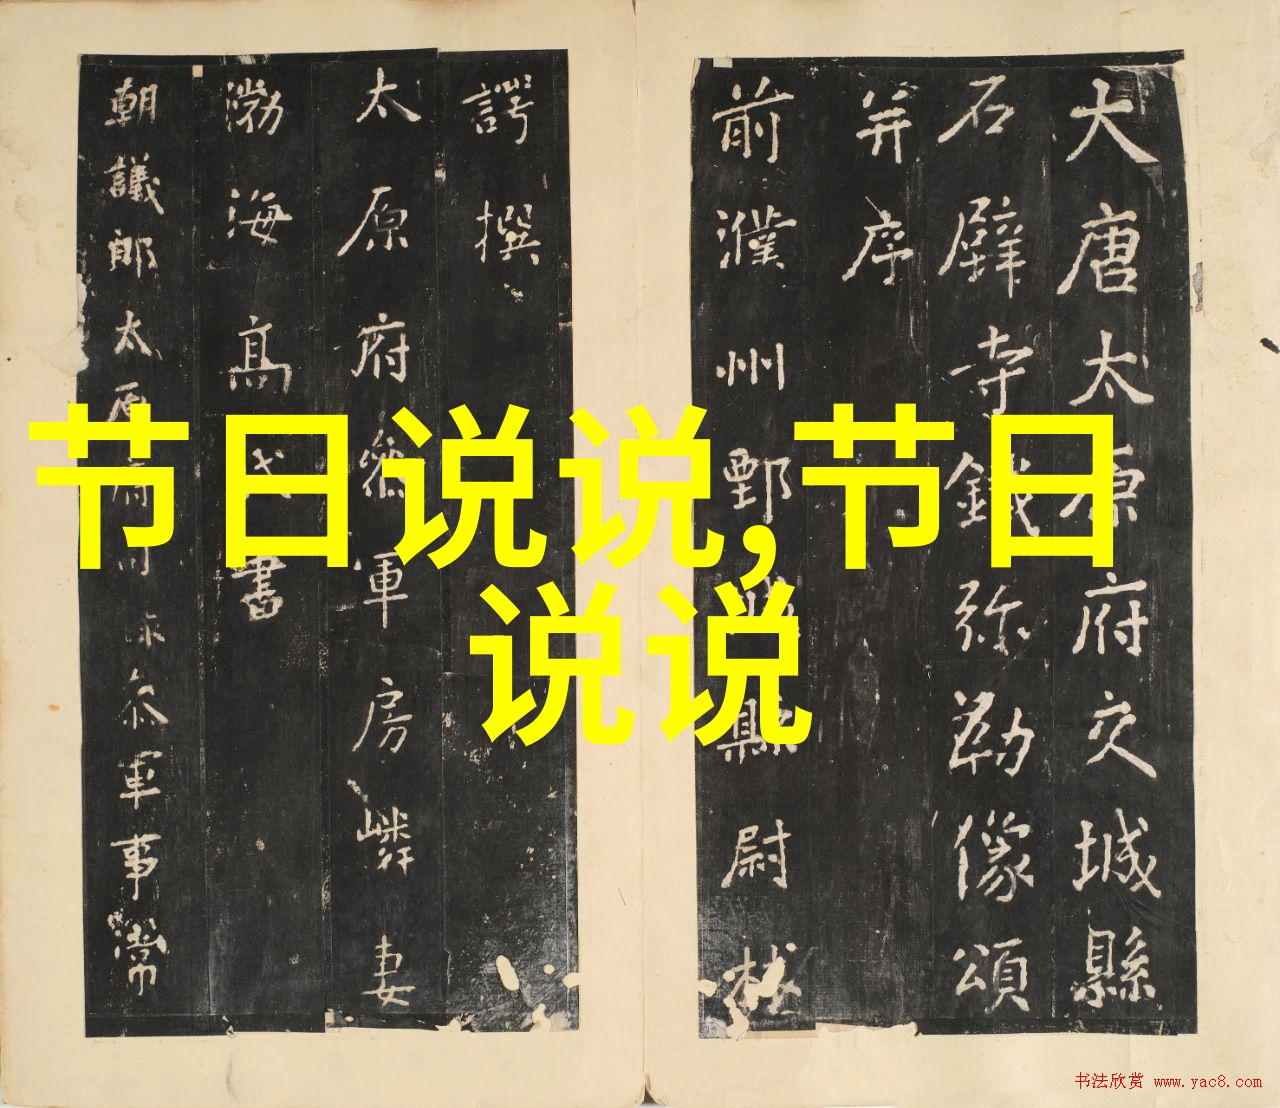 大唐太原府交城縣
石壁寺鐵弥勒像頌
并序
前濮州鄄縣尉林
諤撰
太原府叅軍房嶙妻
渤海高氏書
朝議郎太原府叅軍事常
节日说说,节日
说说
书法欣赏 www.yac8.com